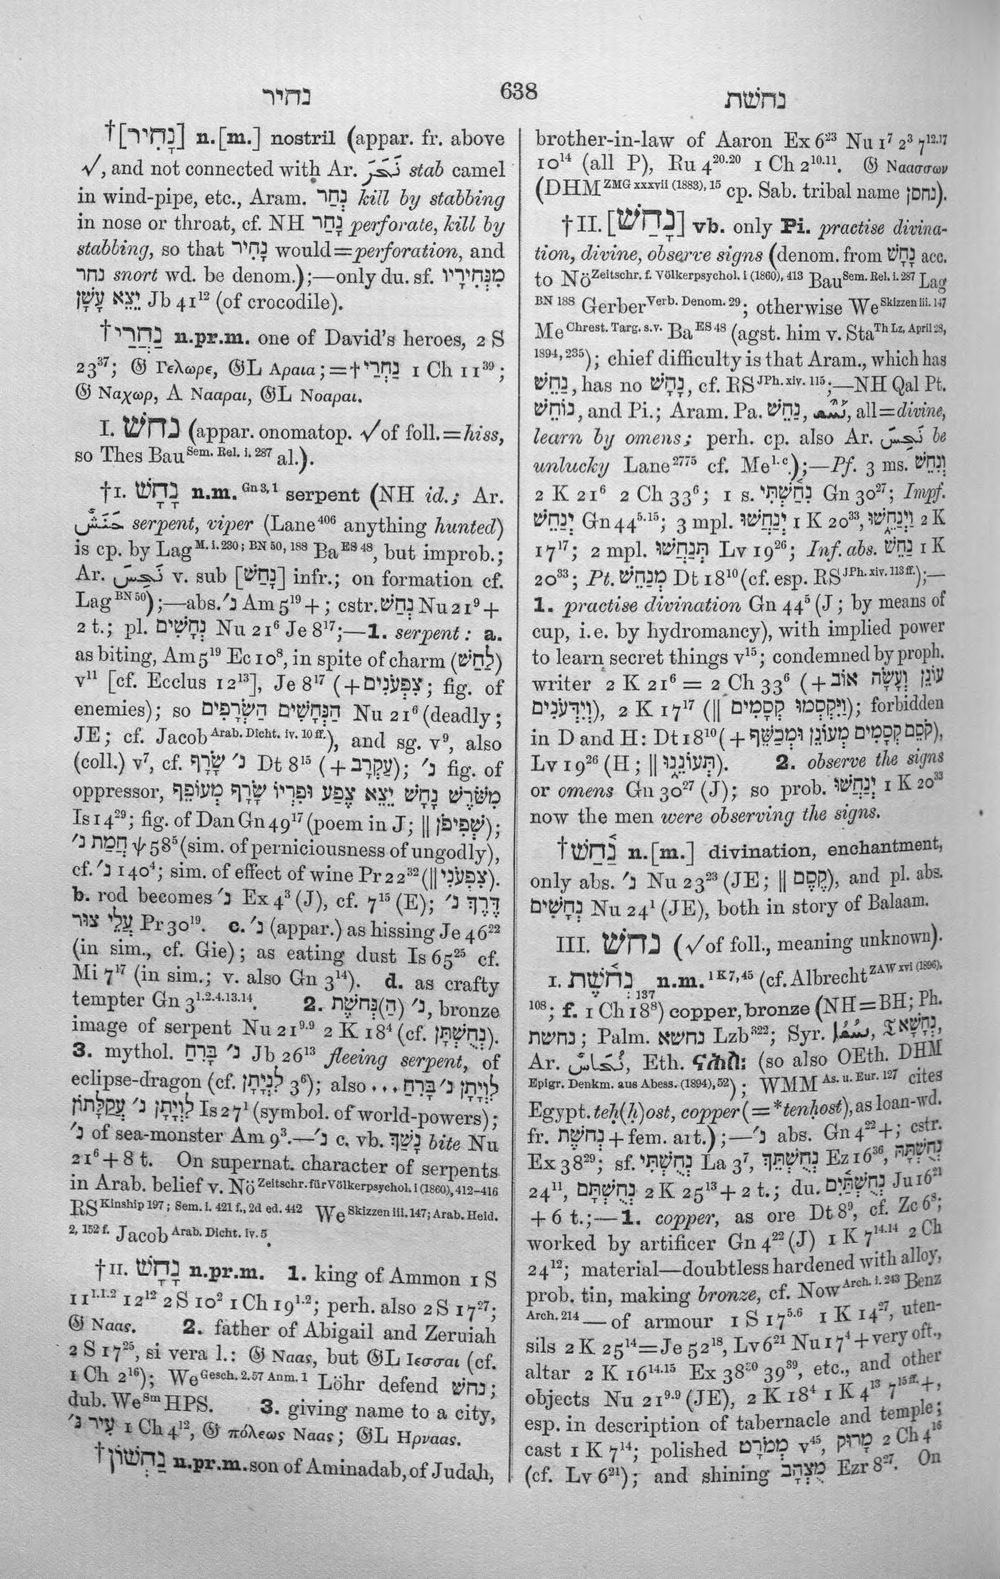 נחיר
638
נחשת
†[נָחִיר] n.[m.] nostril (appar. fr. above
√, and not connected with Ar. نَحَرَ stab camel
in wind-pipe, etc., Aram. נְחַר kill by stabbing
in nose or throat, cf. NH נָחַר perforate, kill by
stabbing, so that נְחִיר would=perforation, and
נחר snort wd. be denom.);—only du. sf. מִנְּחִירָיו
יֵצֵא עָשָׁן Jb 41¹² (of crocodile).
†נַחֲרַי n.pr.m. one of David's heroes, 2 S
23³⁷; 𝔊 Γελωρε, 𝔊L Αραια; =†נַחְרַי 1 Ch 11³⁹;
𝔊 Ναχωρ, A Νααραι, 𝔊L Νοαραι.
I. נחשׁ (appar. onomatop. √of foll.=hiss,
so Thes Bau Sem. Rel. i. 287 al.).
†I. נָחָשׁ n.m. Gn 3, 1 serpent (NH id.; Ar.
حَنَش serpent, viper (Lane⁴⁰⁶ anything hunted)
is cp. by Lag M. i. 230; BN 50, 188 Ba ES 48, but improb.;
Ar. نَحِسَ v. sub [נָחַשׁ] infr.; on formation cf.
Lag BN 50);—abs. נ׳ Am 5¹⁹ +; cstr. נְחַשׁ Nu 21⁹ +
2 t.; pl. נְחָשִׁים Nu 21⁶ Je 8¹⁷;—1. serpent: a.
as biting, Am 5¹⁹ Ec 10⁸, in spite of charm (לַחַשׁ)
v¹¹ [cf. Ecclus 12¹³], Je 8¹⁷ (+צִפְעֹנִים; fig. of
enemies); so הַנְּחָשִׁים הַשְּׂרָפִים Nu 21⁶ (deadly;
JE; cf. Jacob Arab. Dicht. iv. 10 ff.), and sg. v⁹, also
(coll.) v⁷, cf. נ׳ שָׂרָף Dt 8¹⁵ (+עַקְרָב); נ׳ fig. of
oppressor, מִשֹּׁרֶשׁ נָחָשׁ יֵצֵא צֶפַע וּפִרְיוֹ שָׂרָף מְעוֹפֵף
Is 14²⁹; fig. of Dan Gn 49¹⁷ (poem in J; ‖ שְׁפִיפֹן);
חֲמַת נ׳ ψ 58⁵ (sim. of perniciousness of ungodly),
cf. נ׳ 140⁴; sim. of effect of wine Pr 22³² (‖צִפְעֹנִי).
b. rod becomes נ׳ Ex 4³ (J), cf. 7¹⁵ (E); דֶּרֶךְ נ׳
עֲלֵי צוּר Pr 30¹⁹. c. נ׳ (appar.) as hissing Je 46²²
(in sim., cf. Gie); as eating dust Is 65²⁵ cf.
Mi 7¹⁷ (in sim.; v. also Gn 3¹⁴). d. as crafty
tempter Gn 3¹·²·⁴·¹³·¹⁴. 2. נ׳ (הַ)נְּחֹשֶׁת, bronze
image of serpent Nu 21⁹·⁹ 2 K 18⁴ (cf. נְחֻשְׁתָּן).
3. mythol. נ׳ בָּרִחַ Jb 26¹³ fleeing serpent, of
eclipse-dragon (cf. לִוְיָתָן 3⁸); also לִוְיָתָן נ׳ בָּרִחַ . . .
לִוְיָתָן נ׳ עֲקַלָּתוֹן Is 27¹ (symbol. of world-powers);
נ׳ of sea-monster Am 9³.—נ׳ c. vb. נָשַׁךְ bite Nu
21⁶ + 8 t. On supernat. character of serpents
in Arab. belief v. Nö Zeitschr. für Völkerpsychol. i (1860), 412-416
RS Kinship 197; Sem. i. 421 f., 2d ed. 442 We Skizzen iii. 147; Arab. Heid.
2, 152 f. Jacob Arab. Dicht. iv. 5.
†II. נָחָשׁ n.pr.m. 1. king of Ammon 1 S
11¹·¹·² 12¹² 2 S 10² 1 Ch 19¹·²; perh. also 2 S 17²⁷;
𝔊 Ναας. 2. father of Abigail and Zeruiah
2 S 17²⁵, si vera l.: 𝔊 Ναας, but 𝔊L Ιεσσαι (cf.
1 Ch 2¹⁶); We Gesch. 2. 57 Anm. 1 Löhr defend נחשׁ;
dub. We Sm HPS. 3. giving name to a city,
עִיר נ׳ 1 Ch 4¹², 𝔊 πόλεως Ναας; 𝔊L Ηρνaας.
†נַחְשׁוֹן n.pr.m. son of Aminadab, of Judah,
brother-in-law of Aaron Ex 6²³ Nu 1⁷ 2³ 7¹²·¹⁷
10¹⁴ (all P), Ru 4²⁰·²⁰ 1 Ch 2¹⁰·¹¹. 𝔊 Ναασσων
(DHM ZMG xxxvii (1883), 15 cp. Sab. tribal name נחסן).
†II. [נָחַשׁ] vb. only Pi. practise divina-
tion, divine, observe signs (denom. from נָחָשׁ acc.
to Nö Zeitschr. f. Völkerpsychol. i (1860), 413 Bau Sem. Rel. i. 287 Lag
BN 188 Gerber Verb. Denom. 29; otherwise We Skizzen iii. 147
Me Chrest. Targ. s.v. Ba ES 48 (agst. him v. Sta Th Lz, April 28,
1894, 235); chief difficulty is that Aram., which has
נַחֵשׁ, has no נָחָשׁ, cf. RS JPh. xiv. 115;—NH Qal Pt.
נוֹחֵשׁ, and Pi.; Aram. Pa. נַחֵשׁ, ܢܰܚܶܫ, all=divine,
learn by omens; perh. cp. also Ar. نَحِسَ be
unlucky Lane²⁷⁷⁵ cf. Me l.c.);—Pf. 3 ms. וְנִחֵשׁ
2 K 21⁶ 2 Ch 33⁶; 1 s. נִחַשְׁתִּי Gn 30²⁷; Impf.
יְנַחֵשׁ Gn 44⁵·¹⁵; 3 mpl. יְנַחֲשׁוּ 1 K 20³³, וַיְנַחֵשׁוּ 2 K
17¹⁷; 2 mpl. תְּנַחֲשׁוּ Lv 19²⁶; Inf. abs. נַחֵשׁ 1 K
20³³; Pt. מְנַחֵשׁ Dt 18¹⁰ (cf. esp. RS JPh. xiv. 113 ff.);—
1. practise divination Gn 44⁵ (J; by means of
cup, i.e. by hydromancy), with implied power
to learn secret things v¹⁵; condemned by proph.
writer 2 K 21⁶ = 2 Ch 33⁶ (+עוֹנֵן וְעָשָׂה אוֹב
וְיִדְּעֹנִים), 2 K 17¹⁷ (‖ וַיִּקְסְמוּ קְסָמִים); forbidden
in D and H: Dt 18¹⁰ (+קֹסֵם קְסָמִים מְעוֹנֵן וּמְכַשֵּׁף),
Lv 19²⁶ (H; ‖ תְּעוֹנֵנוּ). 2. observe the signs
or omens Gn 30²⁷ (J); so prob. יְנַחֲשׁוּ 1 K 20³³
now the men were observing the signs.
†נַ֫חַשׁ n.[m.] divination, enchantment,
only abs. נ׳ Nu 23²³ (JE; ‖ קֶסֶם), and pl. abs.
נְחָשִׁים Nu 24¹ (JE), both in story of Balaam.
III. נחשׁ (√of foll., meaning unknown).
I. נְחֹ֫שֶׁת₁₃₇ n.m. 1 K 7, 45 (cf. Albrecht ZAW xvi (1896),
108; f. 1 Ch 18⁸) copper, bronze (NH=BH; Ph.
נחשת; Palm. נחשא Lzb³²²; Syr. ܢܚܳܫܳܐ, 𝔗 נְחָשָׁא,
Ar. نُحَاس, Eth. ናሕስ: (so also OEth. DHM
Epigr. Denkm. aus Abess. (1894), 52); WMM As. u. Eur. 127 cites
Egypt. teḥ(ḫ)ost, copper (=*tenḥost), as loan-wd.
fr. נְחֹשֶׁת + fem. art.);—נ׳ abs. Gn 4²² +; cstr.
Ex 38²⁹; sf. נְחֻשְׁתִּי La 3⁷, נְחֻשְׁתֵּךְ Ez 16³⁶, נְחֻשְׁתָּהּ
24¹¹, נְחֻשְׁתָּם 2 K 25¹³ + 2 t.; du. נְחֻשְׁתַּיִם Ju 16²¹
+ 6 t.;—1. copper, as ore Dt 8⁹, cf. Zc 6¹;
worked by artificer Gn 4²² (J) 1 K 7¹⁴·¹⁴ 2 Ch
24¹²; material—doubtless hardened with alloy,
prob. tin, making bronze, cf. Now Arch. i. 243 Benz
Arch. 214—of armour 1 S 17⁵·⁶ 1 K 14²⁷, uten-
sils 2 K 25¹⁴=Je 52¹⁸, Lv 6²¹ Nu 17⁴ + very oft.,
altar 2 K 16¹⁴·¹⁵ Ex 38³⁰ 39³⁹, etc., and other
objects Nu 21⁹·⁹ (JE), 2 K 18⁴ 1 K 4¹³ 7¹⁵ff. +,
esp. in description of tabernacle and temple;
cast 1 K 7¹⁴; polished מְמֹרָט v⁴⁵, מָרוּק 2 Ch 4¹⁶
(cf. Lv 6²¹); and shining מֻצְהָב Ezr 8²⁷. On